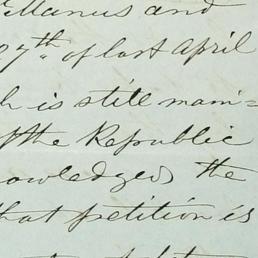 Manus and
27th. of last April
h is still mani=
of the Republic
owledged, the
that petition is